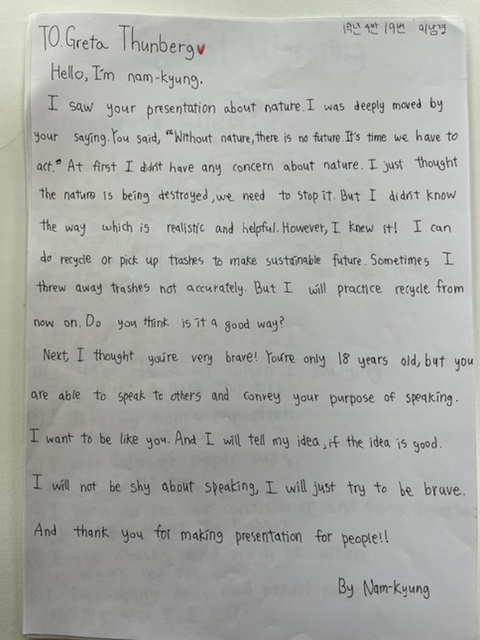 1학년 4반 19번 이남경
TO. Greta Thunberg♥
Hello, I'm nam-kyung.
I saw your presentation about nature. I was deeply moved by
your saying. You said, "Without nature, there is no future. It's time we have to
act." At first I didn't have any concern about nature. I just thought
the nature is being destroyed, we need to stop it. But I didn't know
the way which is realistic and helpful. However, I knew it! I can
do recycle or pick up trashes to make sustainable future. Sometimes I
threw away trashes not accurately. But I will practice recycle from
now on. Do you think is it a good way?
Next, I thought you're very brave! You're only 18 years old, but you
are able to speak to others and convey your purpose of speaking.
I want to be like you. And I will tell my idea, if the idea is good.
I will not be shy about speaking, I will just try to be brave.
And thank you for making presentation for people!!
By Nam-kyung